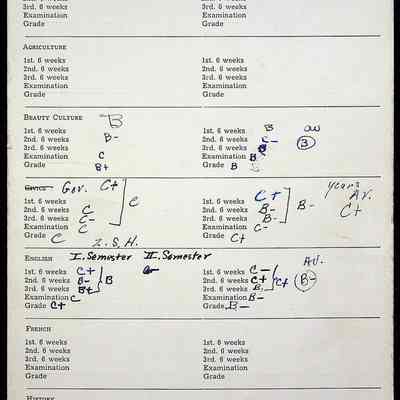 3rd. 6 weeks 3rd. 6 weeks
Examination Examination
Grade Grade
AGRICULTURE
1st. 6 weeks 1st. 6 weeks
2nd. 6 weeks 2nd. 6 weeks
3rd. 6 weeks 3rd. 6 weeks
Examination Examination
Grade Grade
BEAUTY CULTURE B
1st. 6 weeks 1st. 6 weeks B av
2nd. 6 weeks B- 2nd. 6 weeks C-
3rd. 6 weeks 3rd. 6 weeks B 3
Examination C Examination B
Grade B+ Grade B
CIVICS Gov. C+ years Av.
1st. 6 weeks 1st. 6 weeks C+
2nd. 6 weeks C C 2nd. 6 weeks B- B- C+
3rd. 6 weeks C- 3rd. 6 weeks B-
Examination C Examination C-
Grade C 2. S.H. Grade C+
ENGLISH I. Semester II. Semester AV.
1st. 6 weeks C+ 1st. 6 weeks C-
2nd. 6 weeks B- B 2nd. 6 weeks C+ C+ B-
3rd. 6 weeks B+ 3rd. 6 weeks B.
Examination C Examination B-
Grade C+ Grade B-
FRENCH
1st. 6 weeks 1st. 6 weeks
2nd. 6 weeks 2nd. 6 weeks
3rd. 6 weeks 3rd. 6 weeks
Examination Examination
Grade Grade
HISTORY